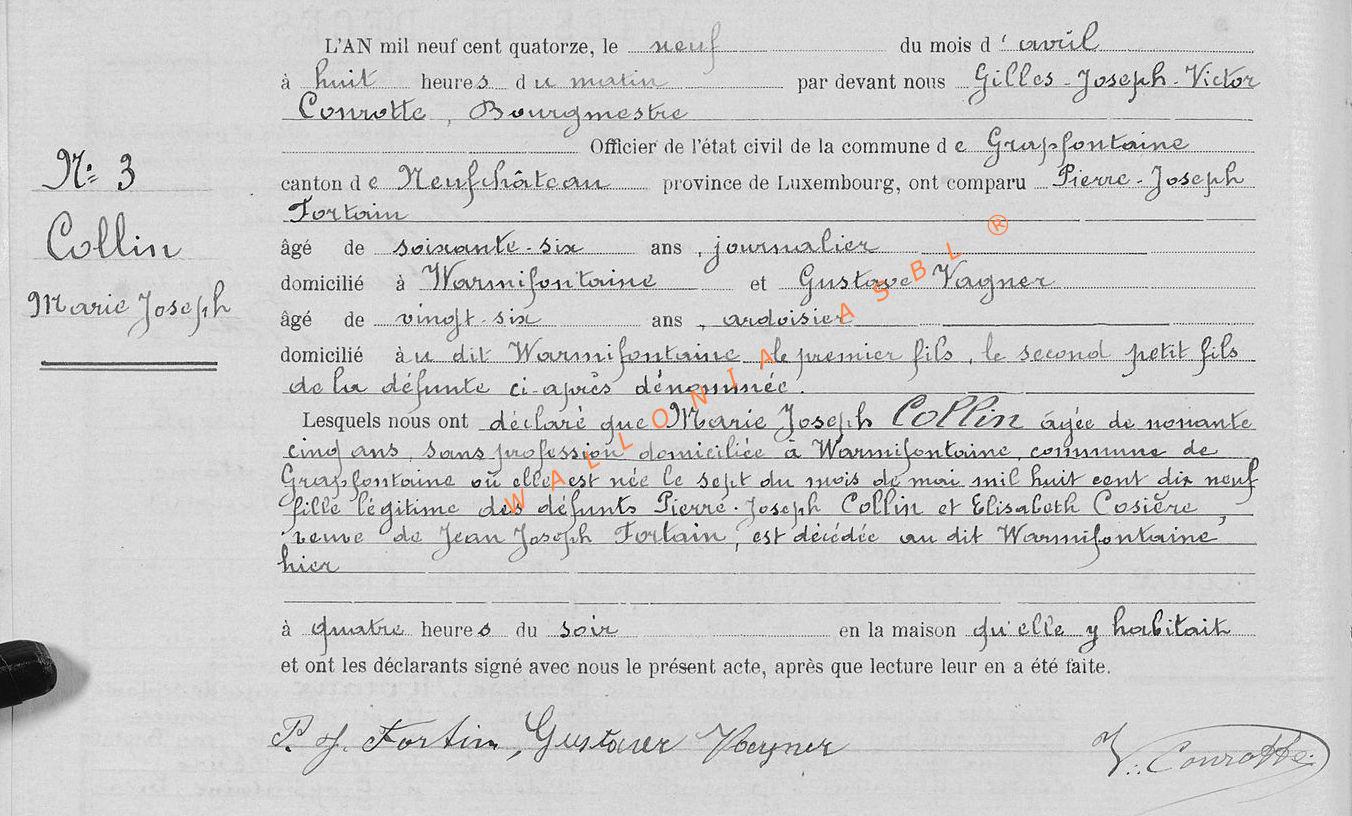 L'AN mil neuf cent quatorze, le neuf du mois d'avril
à huit heures du matin par devant nous Gilles-Joseph-Victor
Conrotte, Bourgmestre
Officier de l'état civil de la commune de Grapfontaine
N° 3
canton de Neufchâteau province de Luxembourg, ont comparu Pierre-Joseph
Fortain
Collin
âgé de soixante-six ans, journalier
Marie Joseph
domicilié à Warmifontaine et Gustave Vagner
âgé de vingt-six ans, ardoisier
domicilié au dit Warmifontaine, le premier fils, le second petit fils
de la défunte ci-après dénommée.
Lesquels nous ont déclaré que Marie Joseph Collin âgée de nonante
cinq ans, sans profession domiciliée à Warmifontaine, commune de
Grapfontaine où elle est née le sept du mois de mai mil huit cent dix neuf
fille légitime des défunts Pierre-Joseph Collin et Elisabeth Cosière,
veuve de Jean Joseph Fortain, est décédée au dit Warmifontaine
hier
à quatre heures du soir en la maison qu'elle y habitait
et ont les déclarants signé avec nous le présent acte, après que lecture leur en a été faite.
P. J. Fortin, Gustave Vagner
V. Conrotte
WALLONIA ASBL ®